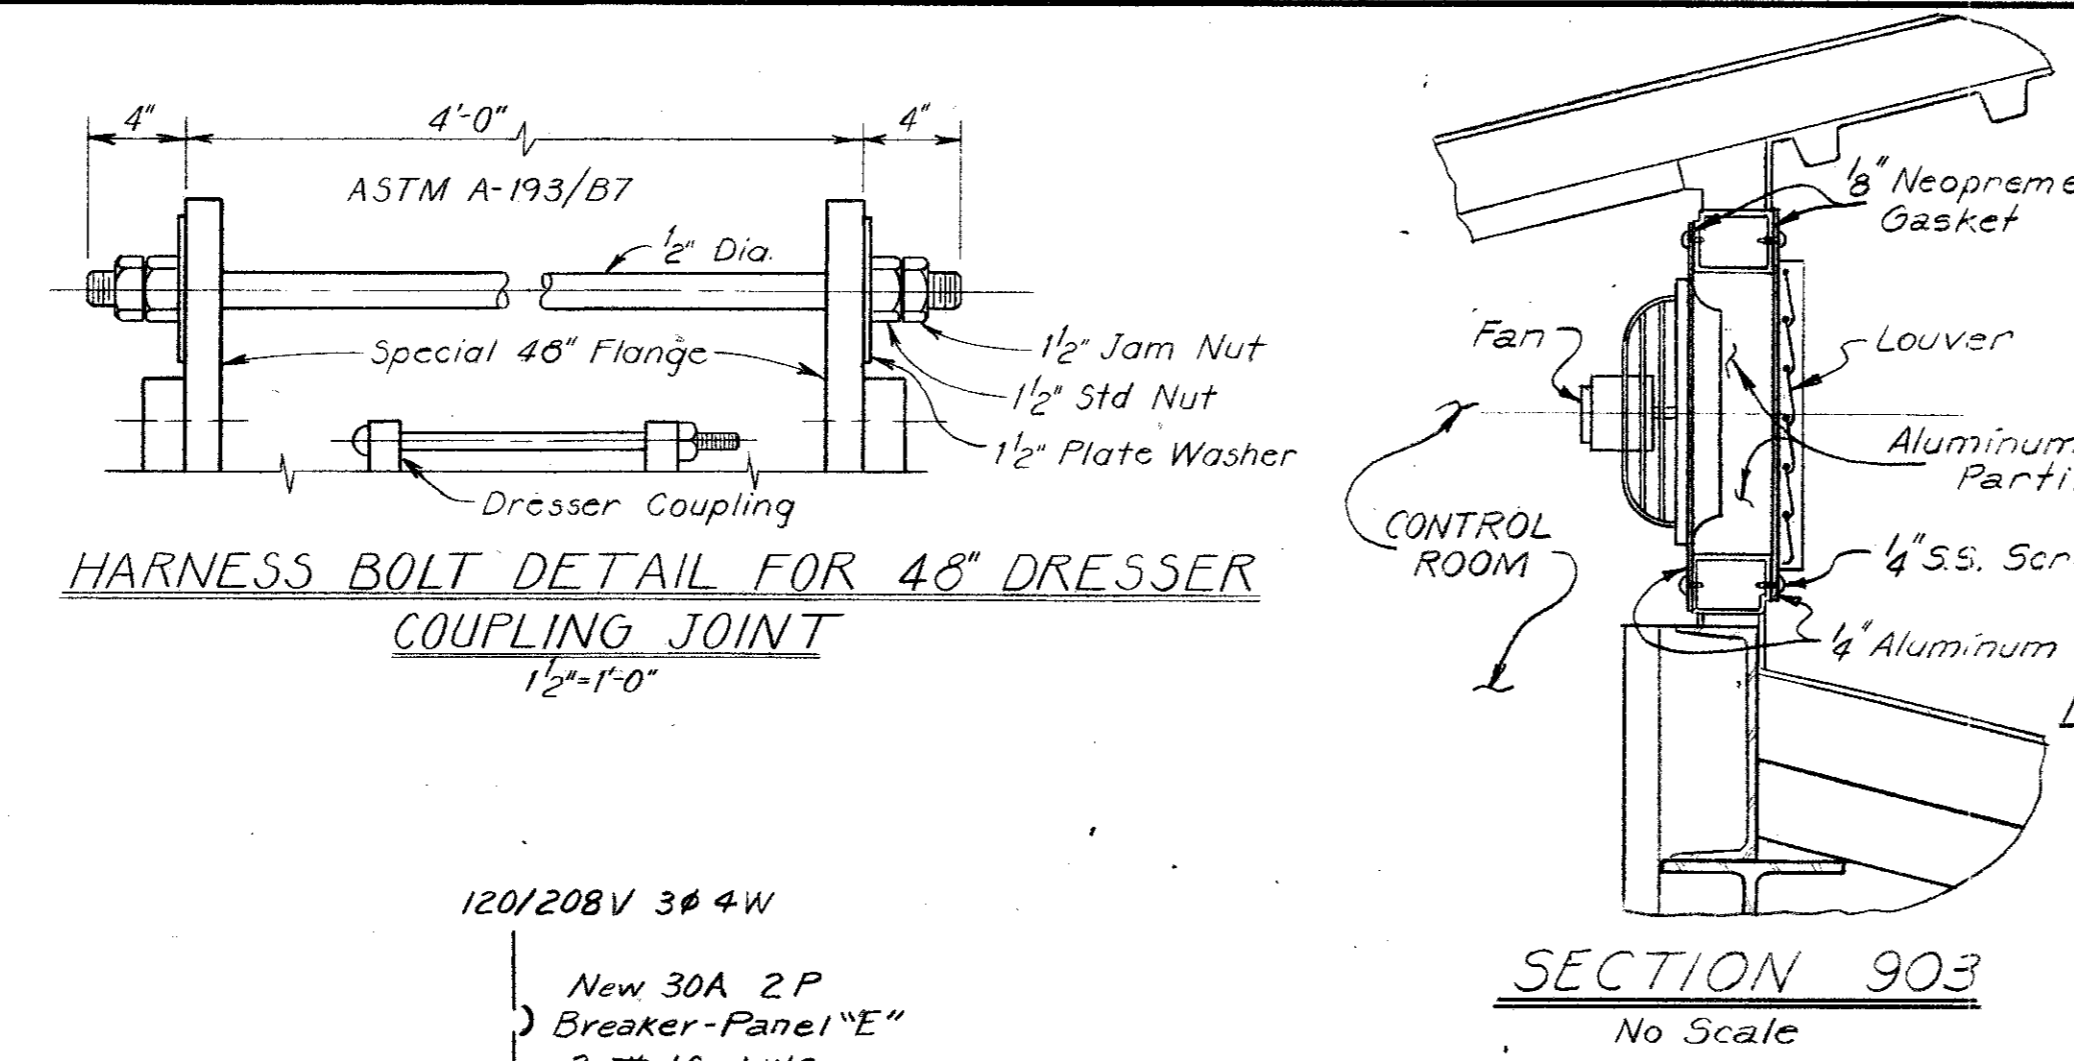 4" 4'-0" 4"
ASTM A-193/B7
1/2" Dia.
Special 48" Flange
1 1/2" Jam Nut
1 1/2" Std Nut
1 1/2" Plate Washer
Dresser Coupling
HARNESS BOLT DETAIL FOR 48" DRESSER
COUPLING JOINT
1 1/2"=1'-0"
120/208V 3φ 4W
New 30A 2P
Breaker-Panel "E"
1/8" Neopreme
Gasket
Fan
Louver
Aluminum
Parti
CONTROL
ROOM
1/4" S.S. Scr
1/4" Aluminum
SECTION 903
No Scale